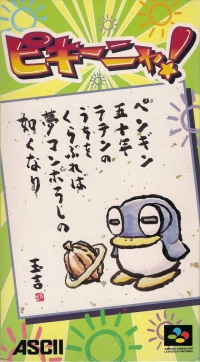 ピキーニャ!
ペンギン
五十年
テチンの
うちを
くらぶれは
夢マンボろしの
如くなり
玉吉
ASCII